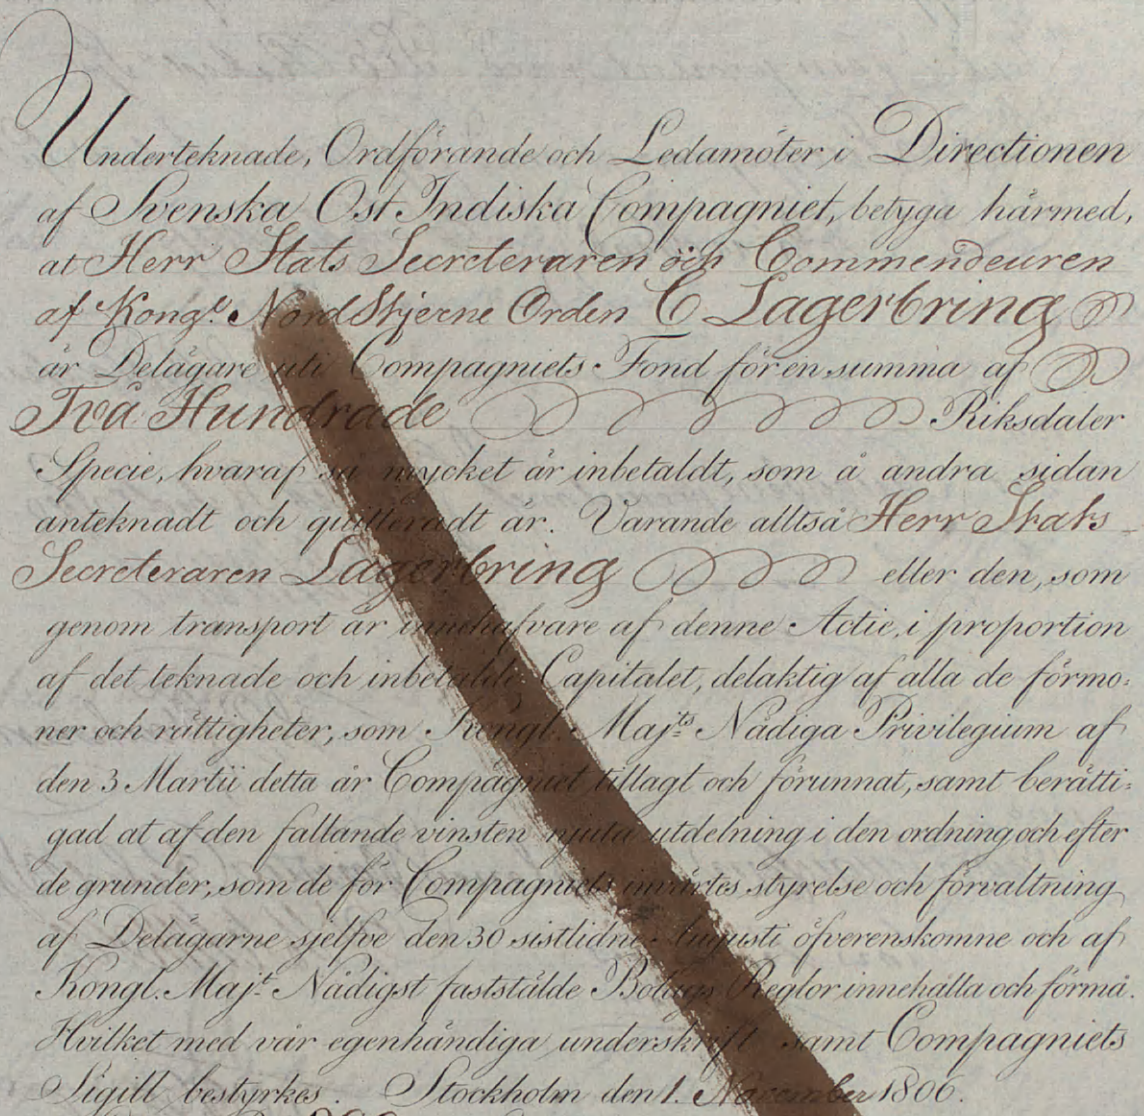 Underteknade, Ordförande och Ledamöter i Directionen
af Svenska Ost Indiska Compagniet, betyga härmed,
at Herr Stats Secreteraren och Commendeuren
af Kongl. Nord Stjerne Orden C Lagerbring
är Delägare uti Compagniets Fond för en summa af
Två Hundrade Riksdaler
Specie, hvaraf så mycket är inbetaldt, som å andra sidan
anteknadt och quitteradt är. Varande alltså Herr Stats
Secreteraren Lagerbring eller den, som
genom transport är innehafvare af denne Actie, i proportion
af det teknade och inbetaldte Capitalet, delaktig af alla de förmo:
ner och rättigheter, som Kongl. Maj:ts Nådiga Privilegium af
den 3 Martii detta år Compagniet tillagt och förunnat, samt berätti:
gad at af den fallande vinsten njuta utdelning i den ordning och efter
de grunder, som de för Compagniets invärtes styrelse och förvaltning
af Delägarne sjelfve den 30 sistlidne Augusti öfverenskomne och af
Kongl. Maj:t Nådigst fastställde Bolags Reglor innehålla och förmå.
Hvilket med vår egenhändiga underskrift samt Compagniets
Sigill bestyrkes. Stockholm den 1. November 1806.